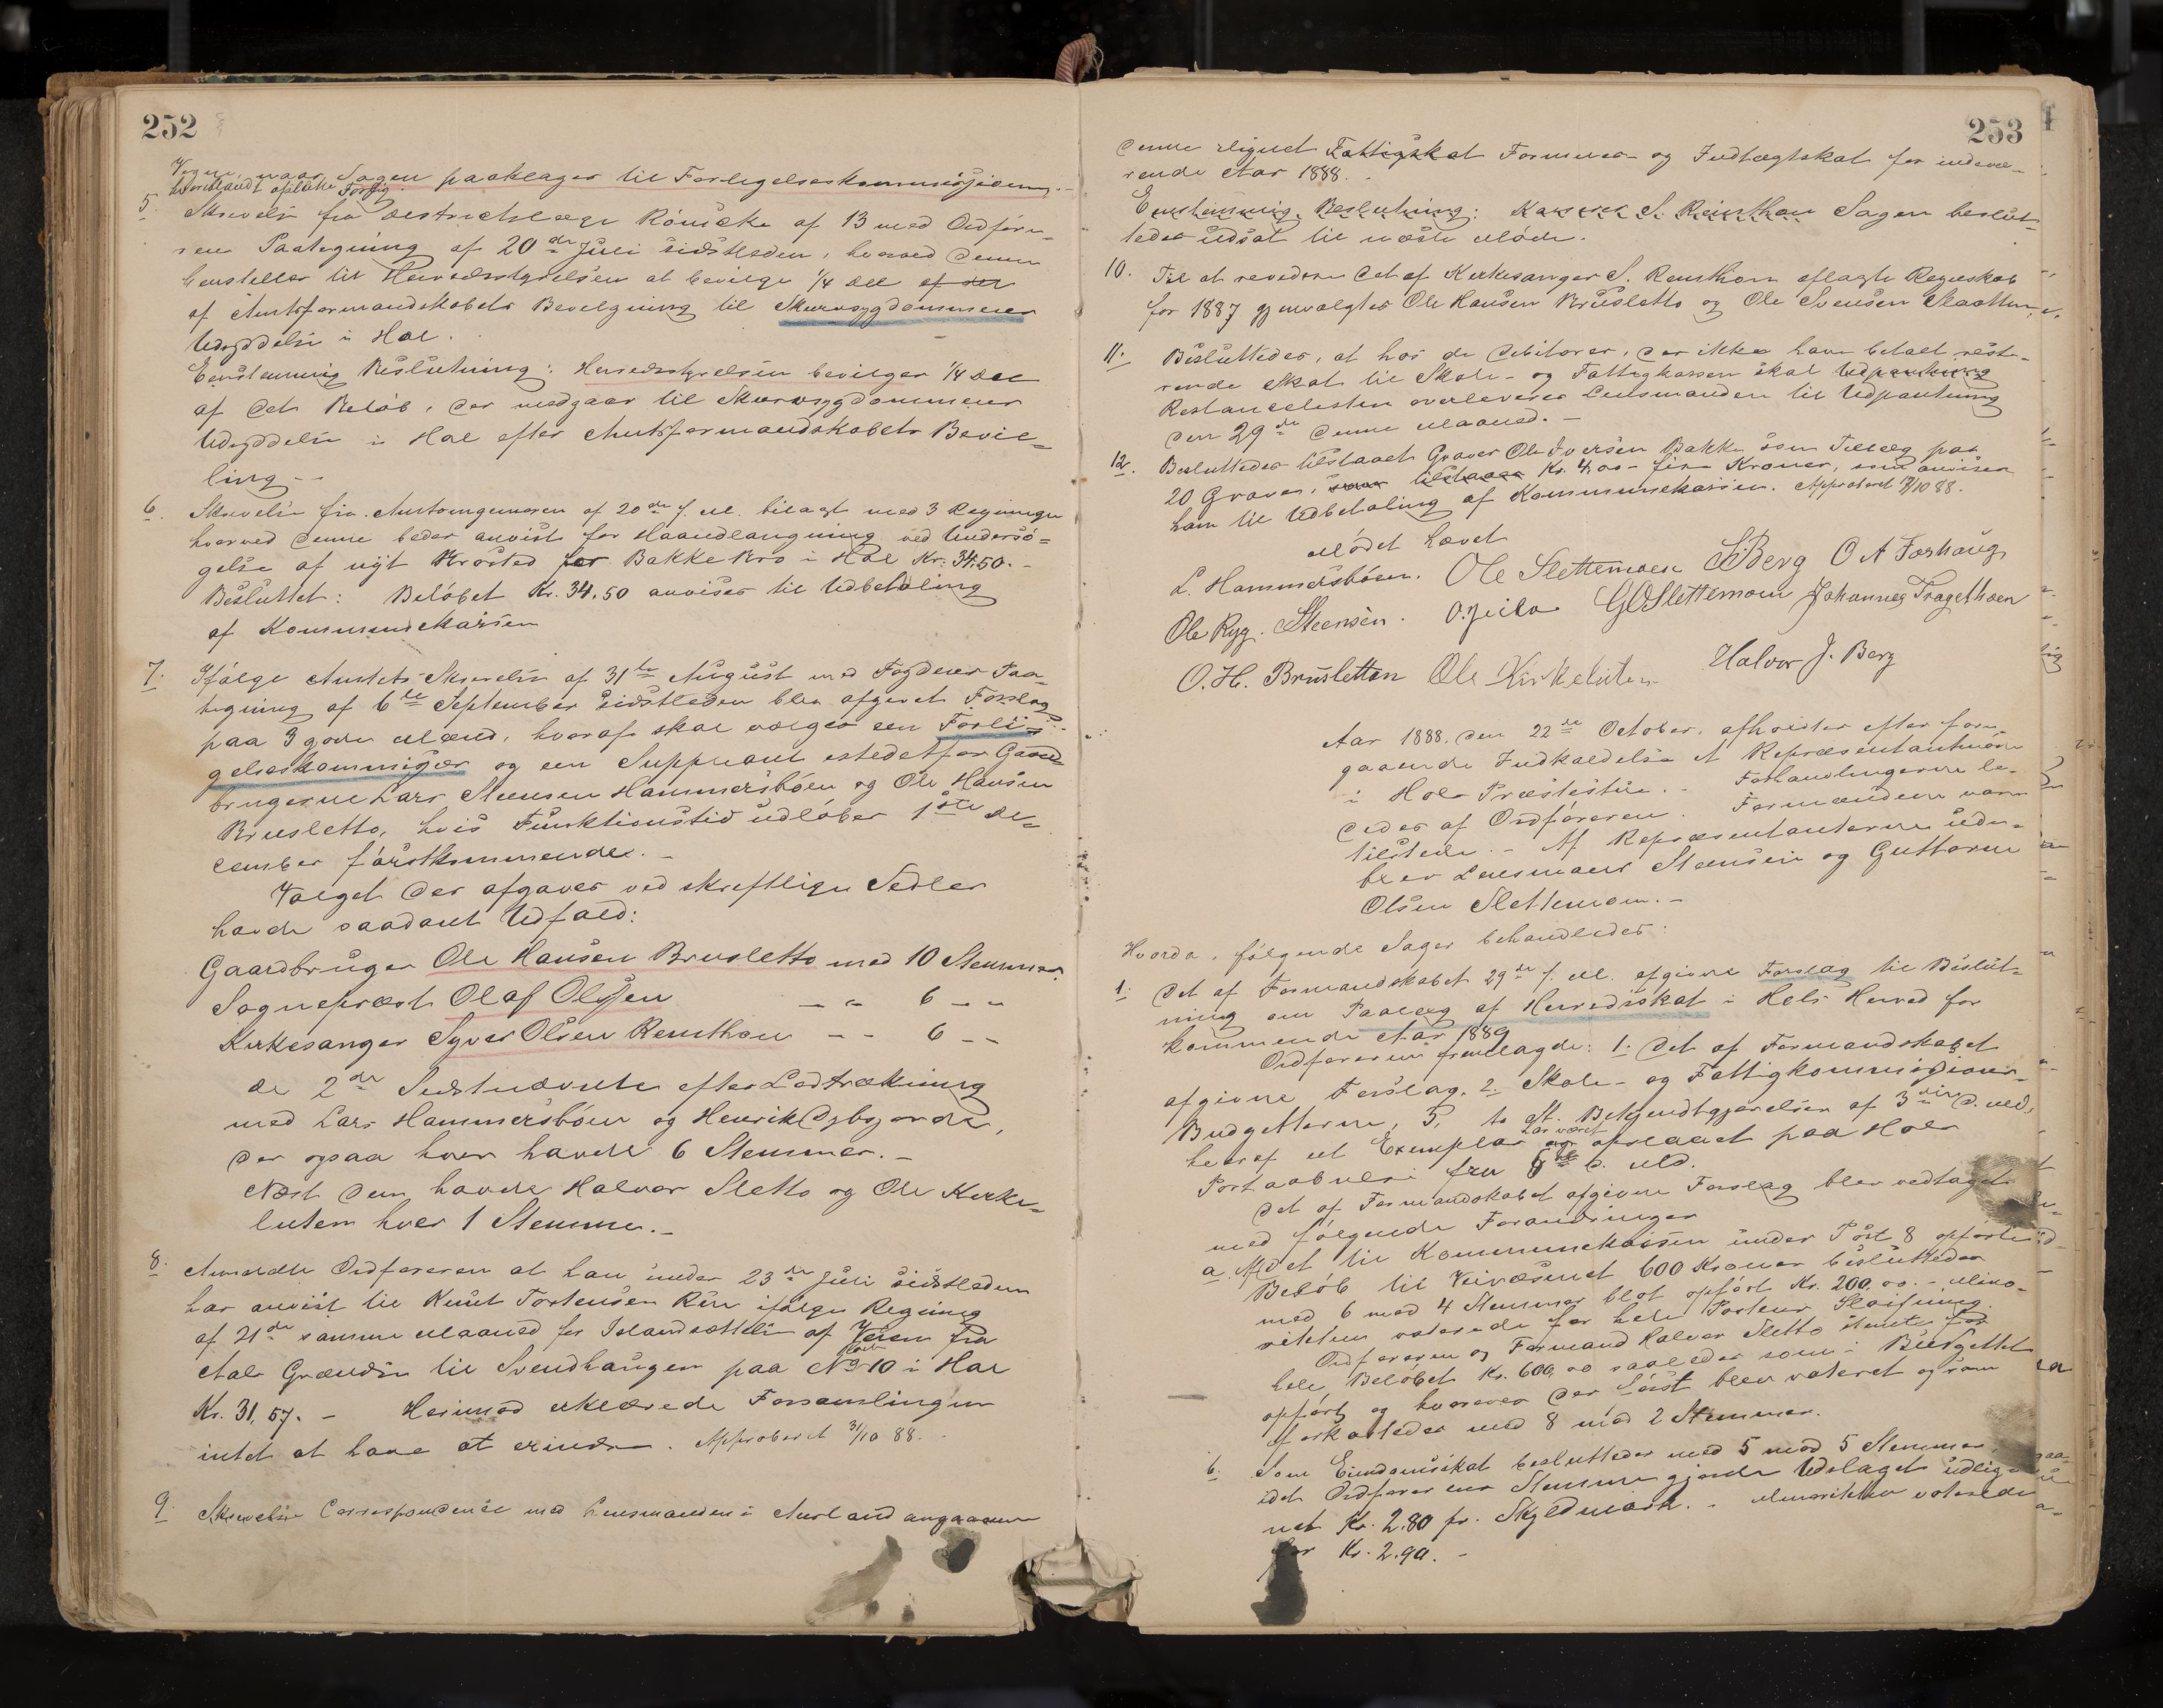 252
Vogne, naar Sagen paaklages til Forligelseskommissionen.
hvoriblandt opslække Forlig.
5. Skrivelse fra Destrictslæge Rönicke af 13 med Ordföre-
rens Paategning af 20de Juli sidstleden, hvorved denne
henstiller til Herredsstyrelsen at bevilge 1/4 del af det
af Amtsformandskabets Bevilgning til Skurvsygdommenes
Udryddelse i Hol.
Eenstemmig Beslutning: Herredsstyrelsen bevilger 1/4 Del
af det Belöb, der medgaar til Skurvsygdommenes
Udryddelse i Hol efter Amtsformandskabets Bevil-
ling. -
6. Skrivelse fra Amtsingeniøren af 20de f. M. bilagt med 3 Regninger
hvorved denne beder anvist for Haandlangning ved Undersö-
gelse af nyt Brosted for Bakke Bro i Hol Kr. 34.50. -
Besluttet: Belöbet Kr. 34.50 anvises til Udbetaling
af Kommunekassen
7. Ifölge Amtets Skrivelse af 31te August med Fogdens Paa-
tegning af 6te September sidstleden blev afgivet Forslag
paa 3 gode Mænd, hvoraf skal vælges een Forli-
gelseskommisær og een Suppleant istedetfor Gaard-
brugerne Lars Steensen Hammersböen og Ole Hansen
Brusletto, hvis Funktionstid udlöber 1ste De-
cember förstkommende. -
Valget der afgaves ved skriftlige Sedler
havde saadant Udfald:
Gaardbruger Ole Hansen Brusletto med 10 Stemmer
Sogneprest Olaf Olssen - " 6 - "
Kirkesanger Syver Olsen Remthon - - 6 - -
de 2de Sidstnævnte efter Lodtrækning
med Lars Hammersböen og Henrik Dybsjorde,
der ogsaa hver havde 6 Stemmer. -
Næst dem havde Halvor Sletto og Ole Kirke-
luten hver 1 Stemme. -
8. Anmeldte Ordföreren at han under 23de Juli sidstleden
har anvist til Knut Torstensen Rue ifölge Regning
af 21de samme Maaned for Istandsættelse af Veien fra
Aals Grændse til Svendhaugen paa Rode No 10 i Hol
Kr. 31,57. - Herimod erklærede Forsamlingen
intet at have at erindre. Approberet 31/10 88.
9. Skrivelse Correspondense med Lensmanden i Aurland angaaende
253
denne lignet Fattigskat Formues- og Indtægtskat for indevæ-
rende Aar 1888.
Eenstemmig Beslutning: Kasserer S. Reinthon Sagen beslut-
tedes udsat til næste Möde.
10. Til at revidere det af Kirkesanger S. Remthon aflagte Regnskab
for 1887 gjenvalgtes Ole Hansen Brusletto og Ole Svensen Skaatten.
11. Besluttedes, at hos de Debitorer, der ikke have betalt reste-
rende Skat til Skole- og Fattigkassen skal Udpantning
Restancelisten overleveres Lensmanden til Udpantning
den 29de denne Maaned. -
12. Besluttedes tilstaaet Graver Ole Iversen Bakke som Tillæg paa
20 Graver, som tilstaaes Kr. 4,00 - fire Kroner, som anvises
ham til Udbetaling af Kommunekassen. Approberet 17/10 88.
Mödet hævet
L. Hammersböen. Ole Slettemoen S. Berg O A Forhaug
Ole Ryg. Steensen. O. Jeilo G O Slettemoen Johannes Tragethoen
O. H. Brusletten Ole Kirkeluten Halvor J. Berg
Aar 1888, den 22de October, afholdtes efter fore-
gaaende Indkaldelse et Repræsentantmöde
i Hols Præstestue. - Forhandlingerne le-
dedes af Ordföreren. Formændene vare
tilstede. - Af Repræsentanterne ude-
blev Lensmand Steensen og Guttorm
Olsen Slettemoen. -
Hvorda, fölgende Sager behandledes:
1. Det af Formandskabet 29de f. M. afgivne Forslag til Beslut-
ning om Paalæg af Herredsskat i Hols Herred for
kommende Aar 1889
Ordföreren fremlagde: 1. Det af Formandskabet
afgivne Forslag. 2. Skole- og Fattigkommissioner-
Budgetterne, 3. to St. Bekjendtgjørelser af 3die d. Md.
heraf et Exemplar har været opslaaet paa Hols
Postaabneri fra 8de d. Md.
Det af Formandskabet afgivne Forslag blev vedtaget
med fölgende Forandringer
a. Af det til Kommunekassen under Post 8 opförte
Belöb til Veivæsenet 600 Kroner besluttedes
med 6 mod 4 Stemmer blot opfört Kr. 200,00. - Mino-
riteten voterede for hele Postens Slöifning.
Ordföreren og Formand Halvor Sletto stemte for
hele Belöbet Kr. 600,00 saaledes som i Budgettet
opfört og hvorover der först blev voteret og som
forkastedes med 8 mod 2 Stemmer.
b. Som Eiendomsskat besluttedes med 5 mod 5 Stemmer,
idet Ordförerens Stemme gjorde Udslaget udlig-
net Kr. 2.80 pr. Skyldmark. - Minoriteten voterede
for Kr. 2.90. -